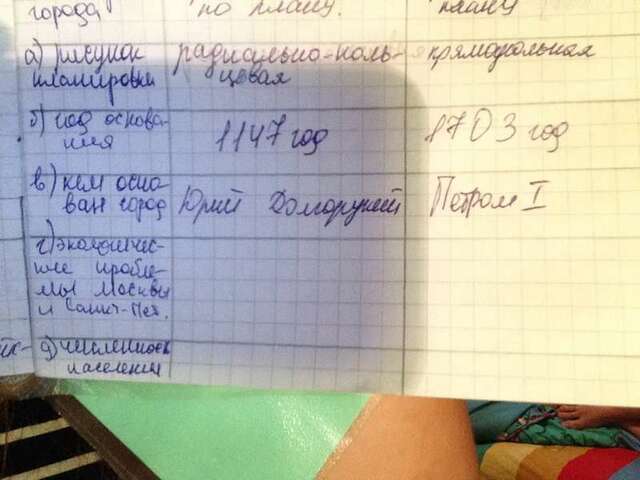 города по плану. плану
а) рисунок радиально-коль- прямоугольная
планировки цевая
б) год основа-
ния 1147 год 1703 год
в) кем осно
ван город Юрий Долгорукий Петром I
г) экологичес-
кие пробле-
мы Москвы
и Санкт-Пет.
д) численность
населения